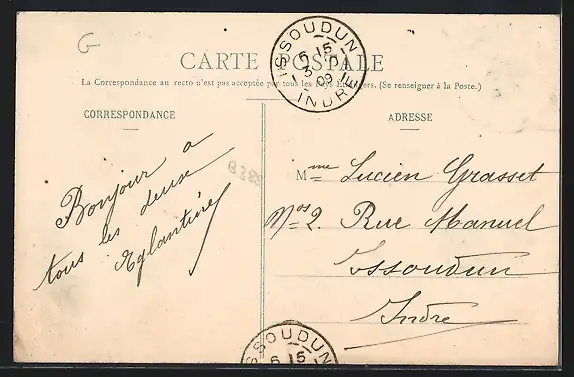 G
CARTE POSTALE
La Correspondance au recto n'est pas acceptée par tous les Pays Etrangers. (Se renseigner à la Poste.)
CORRESPONDANCE
ADRESSE
ISSOUDUN
6 15
3
09
INDRE
Bonjour a
tous les deux
Eglantine
Mme Lucien Grasset
Nos 2. Rue Manuel
Issoudun
Indre
ISSOUDUN
6 15